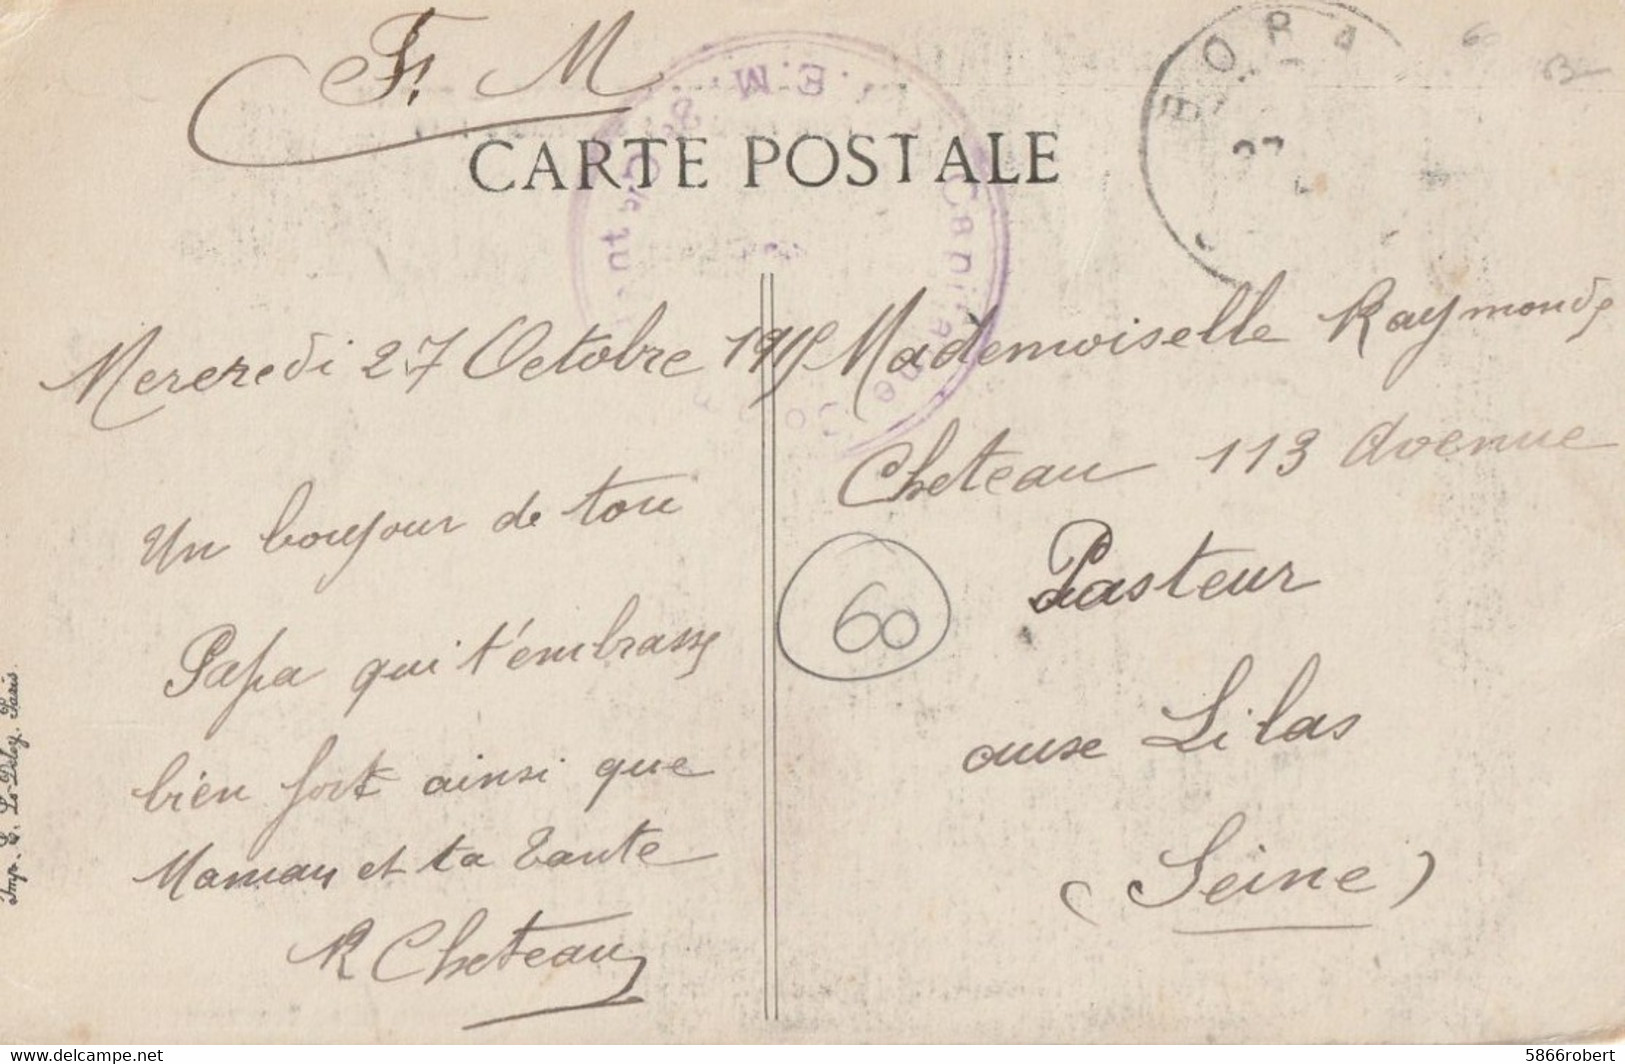 F. M
CARTE POSTALE
Mercredi 27 Octobre 1915
Un bonjour de ton
Papa qui t'embrasse
bien fort ainsi que
Maman et ta Tante
R Cheteau
Mademoiselle Raymonde
Cheteau 113 Avenue
Pasteur
aux Lilas
(Seine)
60
Imp. E. Le Deley. Paris
www.delcampe.net
5866robert